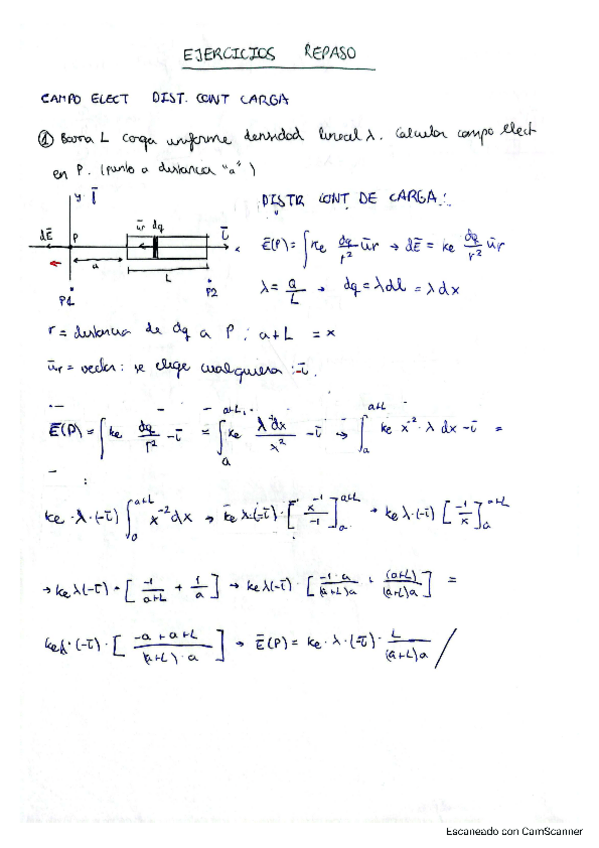 EJERCICIOS REPASO
CAMPO ELECT DIST. CONT CARGA
① Barra L carga uniforme densidad lineal λ. Calcular campo elect
en P. (punto a distancia "a")
DISTR CONT DE CARGA:
y j
dE̅ P u̅r dq i̅
a L
P1 P2
E̅(P) = ∫ Ke dq/r² u̅r → dE̅ = Ke dq/r² u̅r
λ = Q/L → dq = λdl = λdx
r = distancia de dq a P : a+L = x
u̅r = vector : se elige cualquiera : -i̅.
E̅(P) = ∫ Ke dq/r² -i̅ = ∫ₐ^(a+L) Ke λ·dx/x² -i̅ → ∫ₐ^(a+L) Ke x⁻²·λ dx -i̅ =
Ke·λ·(-i̅) ∫₀^(a+L) x⁻²dx → Ke λ·(-i̅)·[x⁻¹/-1]ₐ^(a+L) → Ke λ·(-i̅) [-1/x]ₐ^(a+L)
→ Ke λ(-i̅) · [-1/(a+L) + 1/a] → Ke λ(-i̅)· [-1·a/(a+L)a + (a+L)/(a+L)a] =
Ke λ·(-i̅)· [(-a+a+L)/((a+L)·a)] → E̅(P) = Ke·λ·(-i̅)· L/(a+L)a //
Escaneado con CamScanner